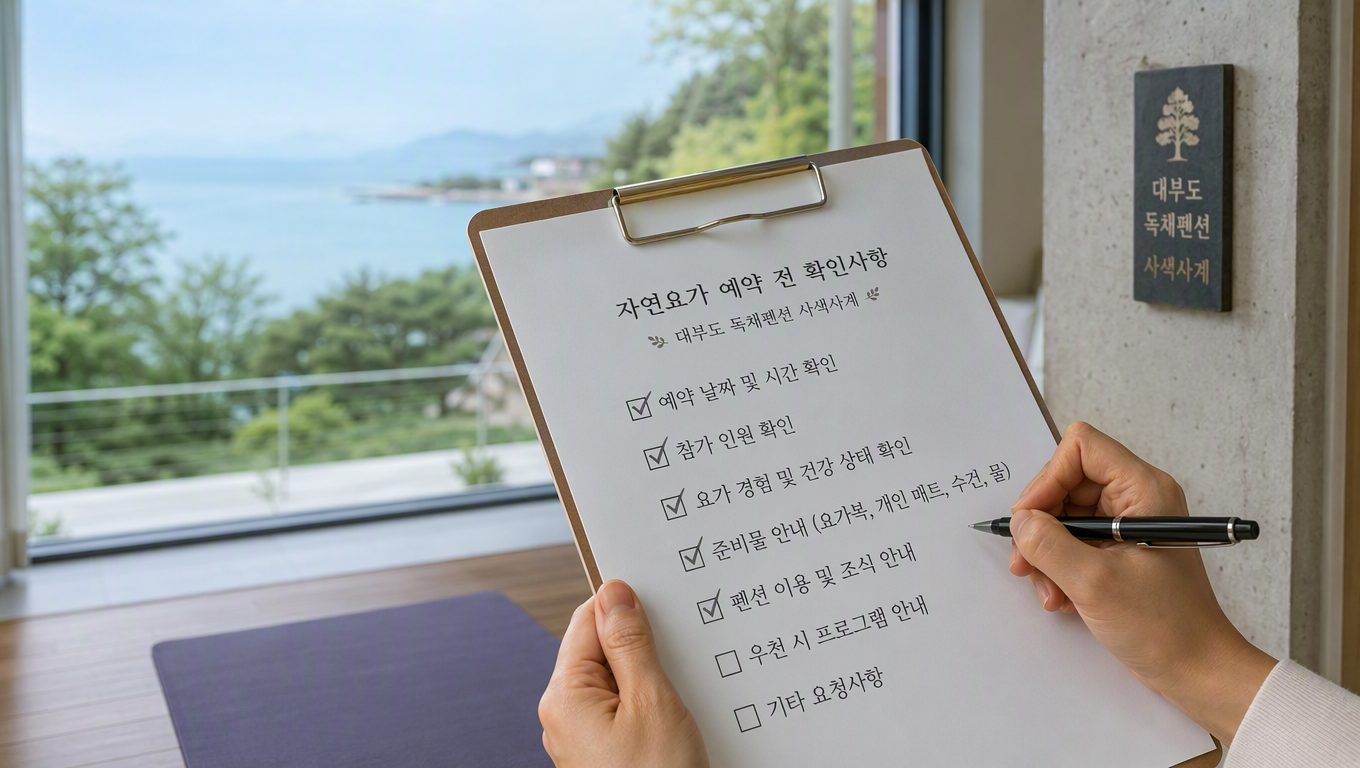 자연요가 예약 전 확인사항
대부도 독채펜션 사색사계
예약 날짜 및 시간 확인
참가 인원 확인
요가 경험 및 건강 상태 확인
준비물 안내 (요가복, 개인 매트, 수건, 물)
펜션 이용 및 조식 안내
우천 시 프로그램 안내
기타 요청사항
대부도
독채펜션
사색사계